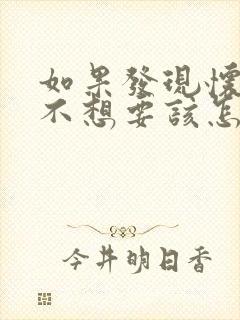 如果發現懷
不想要該怎
今井明日香